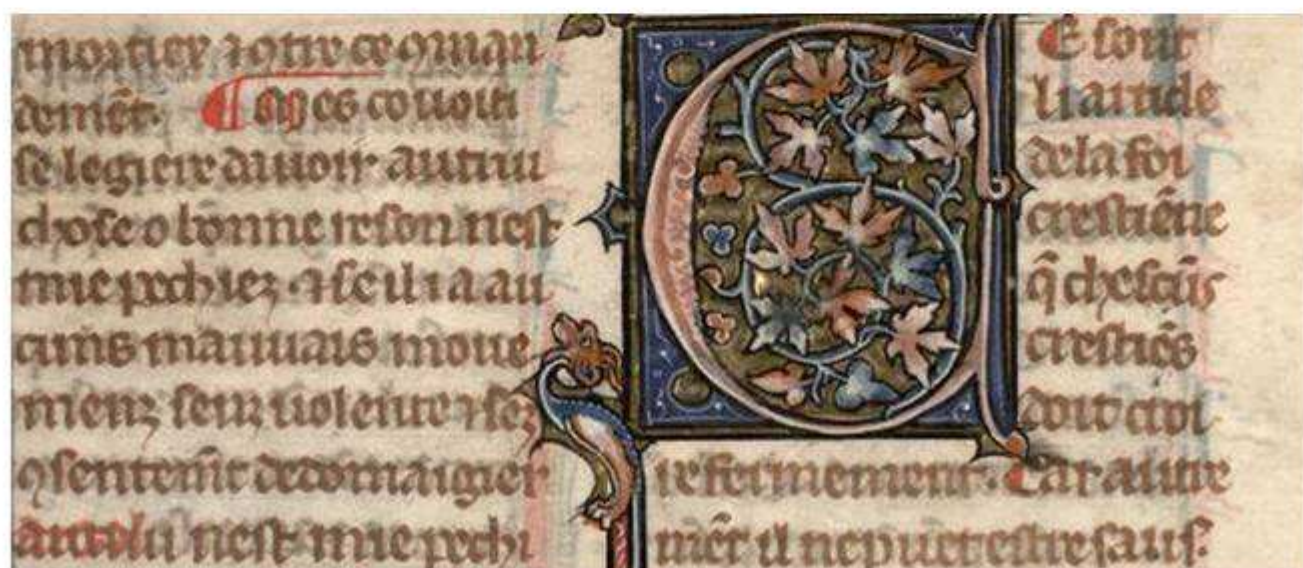 mortiex ⁊ ꝯtre ce ꝯman
demēt. ¶ Mes couoiti
se legiere dauoir autrui
chose o bonne reson nest
mie pechiez ⁊ se il i a au
cuns mauuais moue
menz senz uolente ⁊ sēz
ꝯsentemēt de domaigier
autrui nest mie pechi
CE sont
li article
de la foi
crestiēne
q̄ chascūs
crestiēs
doit croi
re fermement. Car autre
mēt il ne puet estre saus.